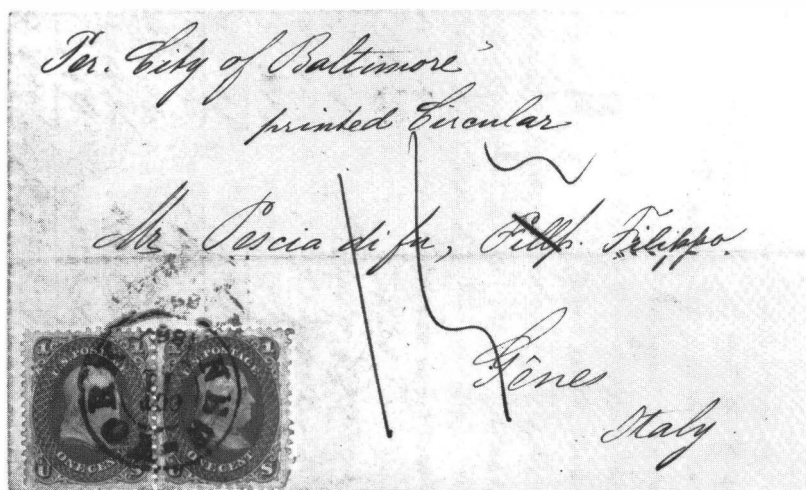 Per. City of Baltimore
printed Circular
Mr Pescia di fu, Fillp. Filippo.
Gênes
Italy
U.S. POSTAGE U.S. POSTAGE
ONE CENT ONE CENT